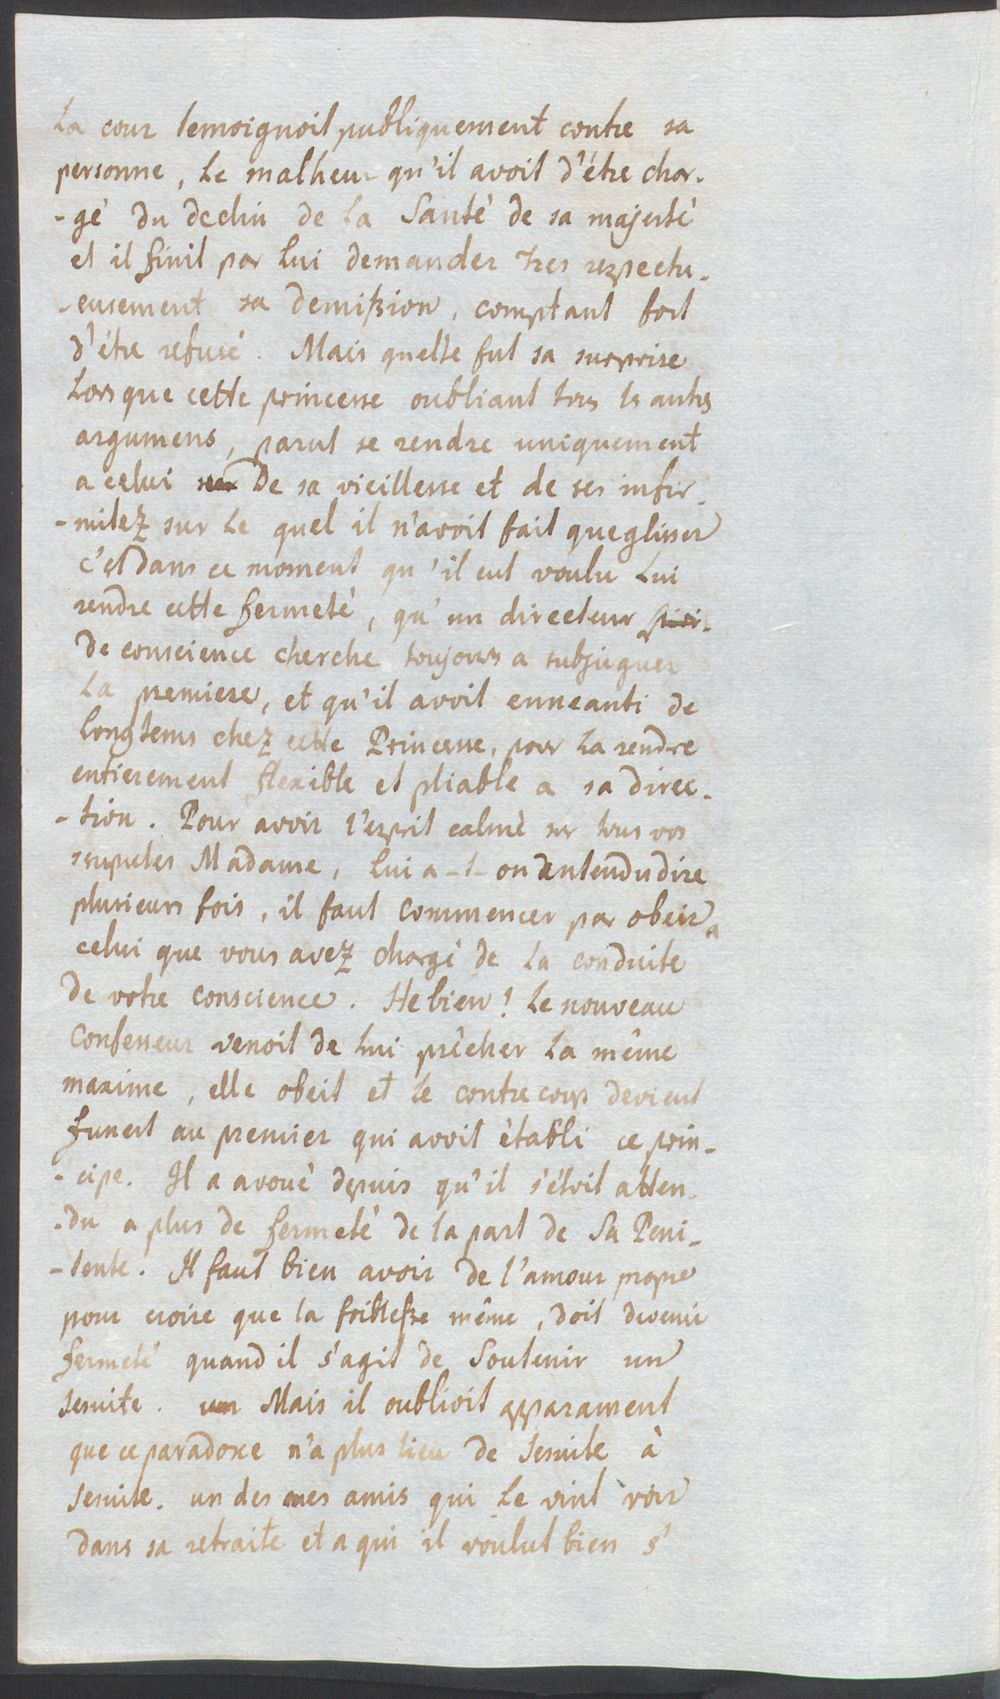 La cour temoignoit publiquement contre sa
personne, le malheur qu'il avoit d'être char-
-gé du declin de la Santé de sa majesté
et il finit par lui demander tres respectu-
-eusement sa demission, comptant fort
d'être refusé. Mais quelle fut sa surprise
Lors que cette princesse oubliant tous les autres
argumens, parut se rendre uniquement
a celui de sa vieillesse et de ses infir-
-mitez sur le quel il n'avoit fait que glisser
c'est dans ce moment qu'il eut voulu Lui
rendre cette fermeté, qu'un directeur
de conscience cherche toujours a subjuguer
La premiere, et qu'il avoit enneanti de
longtems chez cette Princesse, pour La rendre
entierement flexible et pliable a sa direc-
-tion. Pour avoir l'esprit calmé sur tous vos
scrupules Madame, lui a-t-on entendu dire
plusieurs fois, il faut commencer par obeir a
celui que vous avez chargé de la conduite
de votre conscience. He bien! Le nouveau
Confesseur venoit de lui prêcher La même
maxime, elle obeit et le contre coup devient
funest au premier qui avoit établi ce prin-
-cipe. Il a avoué depuis qu'il s'étoit atten-
-du a plus de fermeté de la part de Sa Peni-
-tente. Il faut bien avoir de l'amour propre
pour croire que la foiblesse même, doit devenir
fermeté quand il s'agit de Soutenir un
Jesuite. Mais il oublioit apparament
que ce paradoxe n'a plus lieu de Jesuite à
Jesuite. un des mes amis qui Le vint voir
dans sa retraite et a qui il voulut bien s'